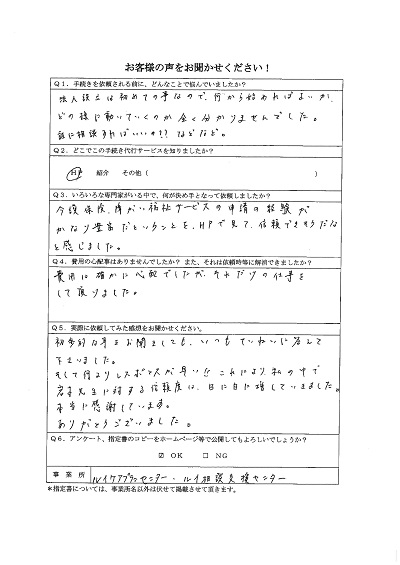 お客様の声をお聞かせください！
Q1．手続きを依頼される前に、どんなことで悩んでいましたか？
法人設立は初めての事なので、何から始めればよいか、
どの様に動いていくのか全く分かりませんでした。
誰に相談すればいいの？？などなど。
Q2．どこでこの手続き代行サービスを知りましたか？
HP　紹介　その他（　）
Q3．いろいろな専門家がいる中で、何が決め手となって依頼しましたか？
介護保険、障がい福祉サービスの申請の経験が
かなり豊富だということを、HPで見て、信頼できそうだな
と感じました。
Q4．費用の心配事はありませんでしたか？また、それは依頼時等に解消できましたか？
費用は確かに心配でしたが、それだけの仕事を
して頂けました。
Q5．実際に依頼してみた感想をお聞かせください。
初歩的な事をお聞きしても、いつもていねいに答えて
下さいました。
そして何よりレスポンスが早い!! これにより私の中で
先生に対する信頼度は、日に日に増していきました。
本当に感謝しています。
ありがとうございました。
Q6．アンケート、指定書のコピーをホームページ等で公開してもよろしいでしょうか？
☑ OK　☐ NG
事業所　ルイケアプランセンター・ルイ相談支援センター
＊指定書については、事業所名以外は伏せて掲載させて頂きます。